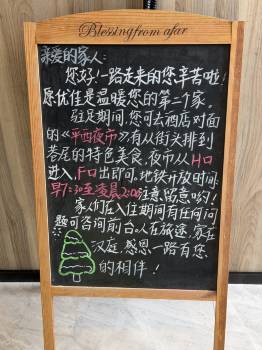 Blessing from afar
亲爱的家人:
您好!一路走来的您辛苦啦!
愿优佳是温暖您的第二个家。
驻足期间,您可去酒店对面
的《平西夜市》有从街头排到
巷尾的特色美食,夜市从H口
进入,F口出即可,地铁开放时间:
早7:30至凌晨2:00注意留意哟!
家人们在入住期间有任何问
题可咨询前台。人在旅途,家在
汉庭,感恩一路有您
的相伴!